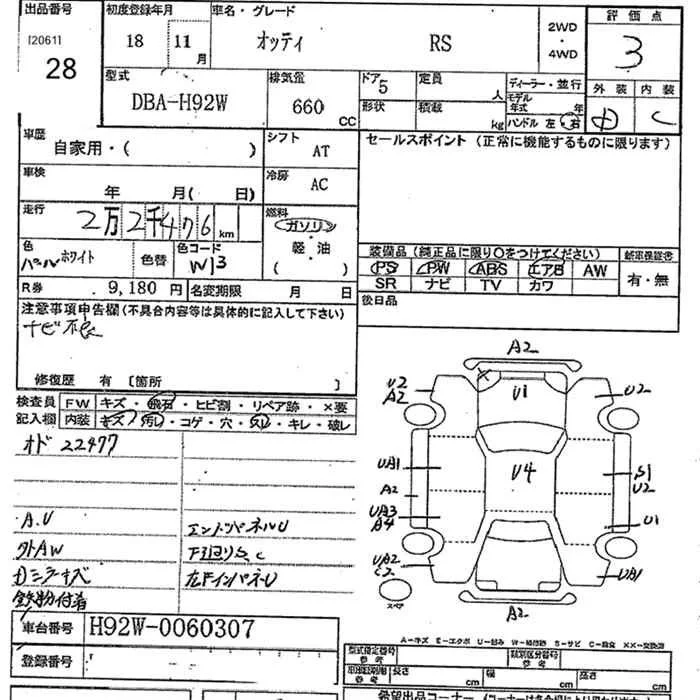 出品番号 初度登録年月 車名・グレード 評価点
[20611 18 11月 オッティ RS 2WD・4WD 3
28
型式 排気量 ドア 5 定員 人 ディーラー・並行 外装 内装
DBA-H92W 660 CC 形状 積載 kg モデル年式 年 D C
ハンドル 左・右
車歴 シフト セールスポイント (正常に機能するものに限ります)
自家用・( ) AT
車検 冷房
年 月( 日) AC
走行 燃料
2万2千476 km ガソリン
軽・油
( )
色 色替 色コード 装備品 (純正品に限り○をつけてください) 新車保証書
パールホワイト W13 PS PW ABS エアB AW 有・無
SR ナビ TV カワ
R券 9,180 円 名変期限 月 日 後日品
注意事項申告欄(不具合内容等は具体的に記入して下さい)
ナビ不良
修復歴 有 [箇所 ]
検査員 FW キズ・飛石・ヒビ割・リペア跡・×要
記入欄 内装 キズ・汚レ・コゲ・穴・スレ・キレ・破レ
オド 22477
A.U エンドパネルU
外AW 下廻りS、C
鉄粉付着
A2
U2 U1 U2
A2
UA1 U4 S1
A2 U2
UA3 U1
A4
UA2 UA1
C2
スペア
A2
車台番号 H92W-0060307
A-キズ E-エクボ U-凹み W-補修跡 S-サビ C-腐食 XX-交換済
登録番号 型式指定番号 参考 類別区分番号 参考
参考 長さ cm 幅 cm 高さ cm
希望出品コーナー